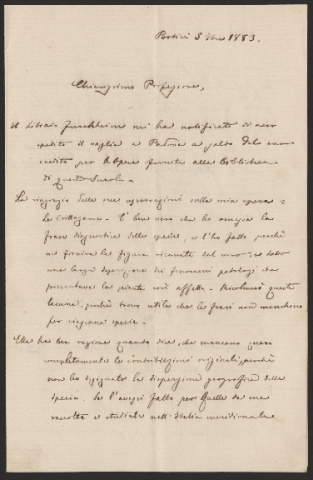 Portici 5 1883.
Chiarissimo Professore,
Il Libraio Furchheim mi ha notificato di aver
spedito il vaglia a Padova a saldo del suo
credito per le Opere fornite alla biblioteca
di questa Scuola.
La ringrazio delle sue osservazioni sulla mia opera:
Le Crittogame. È bene vero che ho omesso la
frase diagnostica delle specie, e l'ho fatto perchè
mi forniva la figura ricavata dal vero: e dato
una larga descrizione dei fenomeni patologi che
presentava la pianta così affetta. questa
lacuna, perchè trovo utile che le frasi non manchino
per ciascuna specie.
Ella ha ben ragione quando dice, che mancano quasi
completamente le contribuzioni originali, perchè
non ho segnalato la dispersione geografica delle
specie. Se l'avessi fatto per quelle da me
raccolte e studiate nell'Italia meridionale